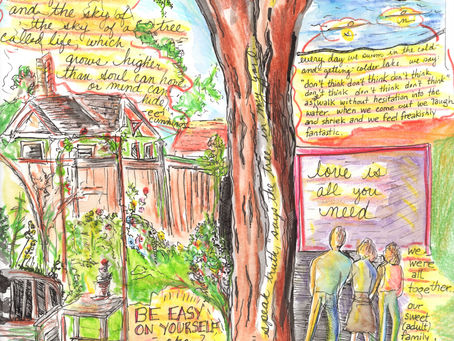 and the sky of
the sky of a tree
called life; which
grows higher
than soul can hope
or mind can
hide
ee cummings
every day we swim in the cold
and getting colder lake we say:
"don't think don't think don't think
don't think don't think don't think
as walk without hesitation into the
water. when we come out we laugh
and shriek and we feel freakishly
fantastic.
speak
yourself
love is
all you
need
BE EASY
ON YOURSELF
we
were
all
together
our
sweet
(adult)
family